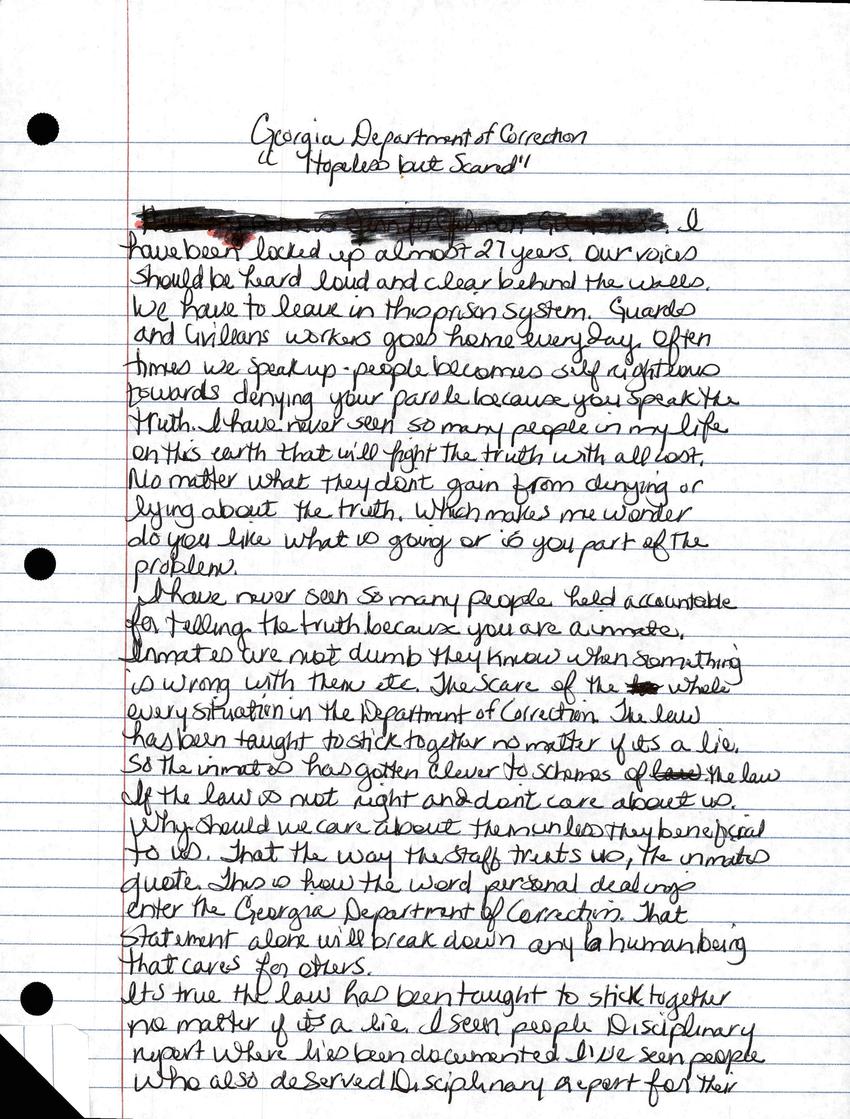 Georgia Department of Correction
" Hopeless but Scared"
I
have been locked up almost 27 years. Our voices
should be heard loud and clear behind the walls.
We have to leave in this prison system. Guards
and Civileans workers goes home everyday. Often
times we speak up - people becomes self rightious
towards denying your parole because you speak the
truth. I have never seen so many people in my life
on this earth that will fight the truth with all cost.
No matter what they dont gain from denying or
lying about the truth. Which makes me wonder
do you like what is going or is you part of the
problem.
I have never seen so many people held accountable
for telling the truth because you are a inmate.
Inmates are not dumb they know when something
is wrong with them etc. The scare of the whole
every situation in the Department of Correction. The law
has been taught to stick together no matter if its a lie.
So the inmates has gotten clever to schemes of law the law
If the law is not right and dont care about us.
Why should we care about them unless they beneficial
to us. That the way the staff treats us, the inmates
quote. This is how the word personal dealings
enter the Georgia Department of Correction. That
statement alone will break down any human being
that cares for others.
Its true the law has been taught to stick together
no matter if its a lie. I seen people Disciplinary
report where lies been documented. I've seen people
who also deserved Disciplinary report for their